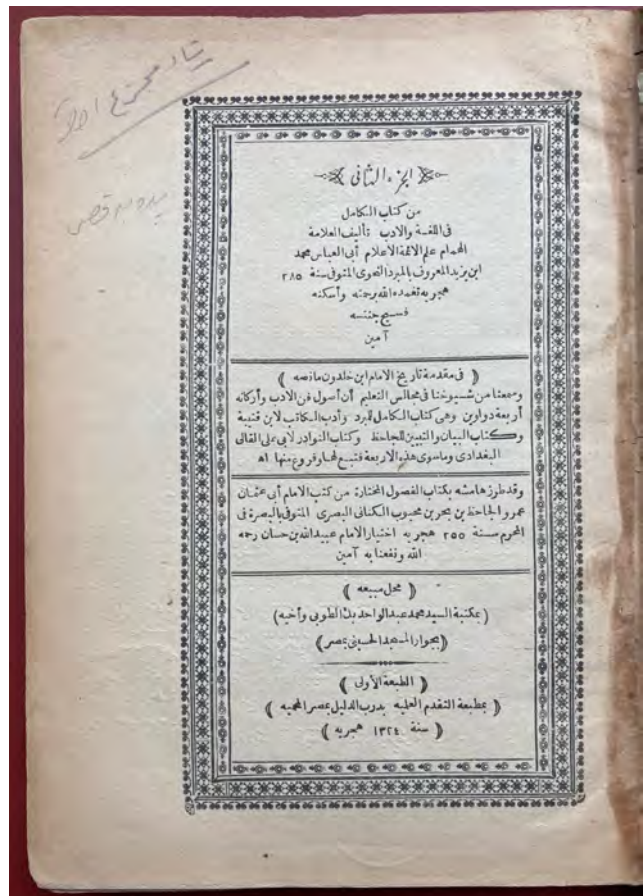 الجزء الثانى
من كتاب الكامل
فى اللغة والادب تأليف العلامة
الهمام علم الائمة الاعلام أبى العباس محمد
ابن يزيد المعروف بالمبرد النحوى المتوفى سنة ٢٨٥
هجريه تغمده الله برحمته وأسكنه
فسيح جنته
آمين
﴿ فى مقدمة تاريخ الامام ابن خلدون مانصه ﴾
وسمعنا من شيوخنا فى مجالس التعليم أن أصول فن الادب وأركانه
أربعة دواوين وهى كتاب الكامل للمبرد وأدب الكاتب لابن قتيبة
وكتاب البيان والتبيين للجاحظ وكتاب النوادر لابى على القالى
البغدادى وماسوى هذه الاربعة فتبع لها وفروع منها اه
وقد طرز هامشه بكتاب الفصول المختارة من كتب الامام أبى عثمان
عمرو الجاحظ بن بحر بن محبوب الكنانى البصرى المتوفى بالبصرة فى
المحرم سنة ٢٥٥ هجريه اختيار الامام عبيد الله بن حسان رحمه
الله ونفعنا به آمين
﴿ محل مبيعه ﴾
(بمكتبة السيد محمد عبد الواحد بك الطوبى وأخيه)
﴿بجوار المسجد الحسينى بمصر﴾
﴿ الطبعة الأولى ﴾
﴿ بمطبعة التقدم العلميه بدرب الدليل بمصر المحميه ﴾
﴿ سنة ١٣٢٤ هجريه ﴾